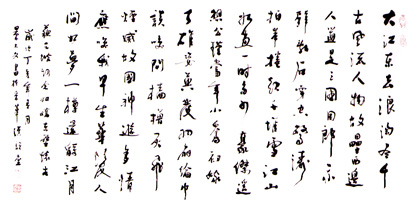 大江東去浪淘盡千
古風流人物故壘西邊
人道是三國周郎赤
壁亂石穿空驚濤
拍岸捲起千堆雪江山
如畫一時多少豪傑遙
想公瑾當年小喬初嫁
了雄姿英發羽扇綸巾
談笑間檣櫓灰飛
煙滅故國神遊多情
應笑我早生華髮人
間如夢一樽還酹江月
蘇子瞻詞念奴嬌赤壁懷古
歲次丁亥